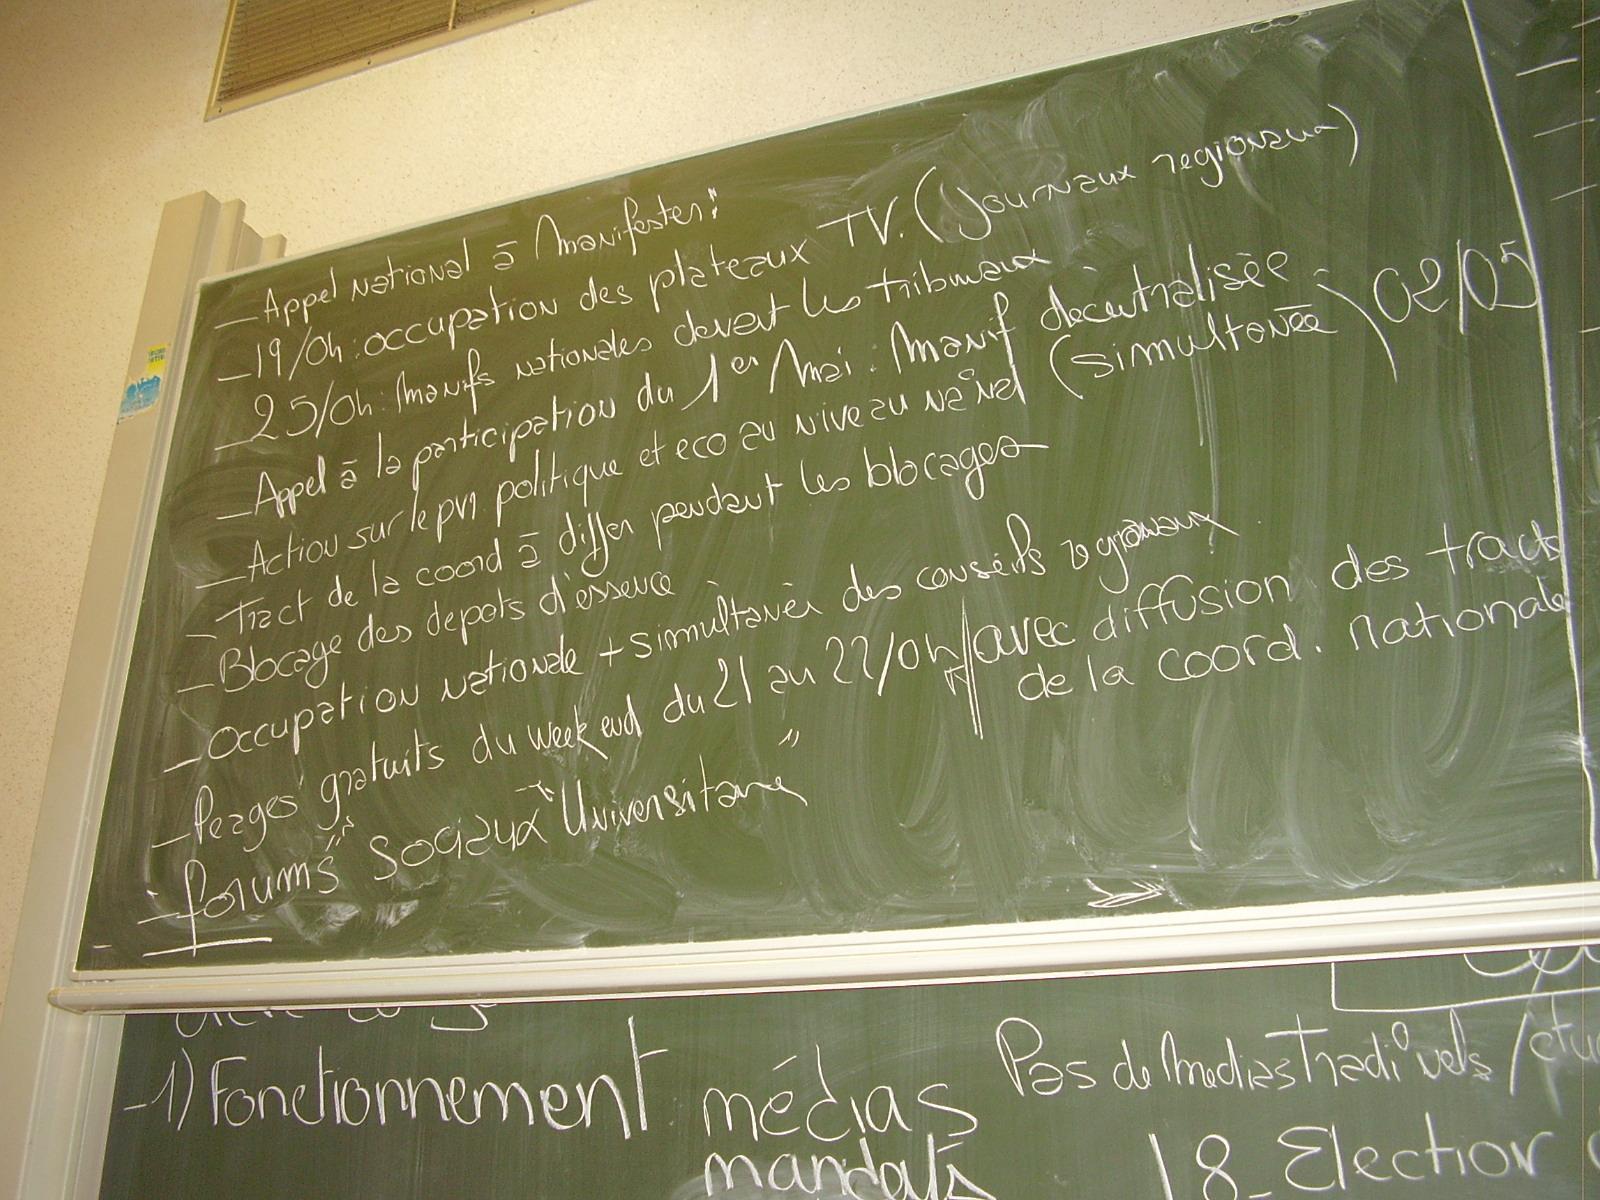 – Appel National à Manifester:
– 19/04: occupation des plateaux TV. (Journaux regionaux)
– 25/04: Manifs nationales devant les tribunaux
– Appel à la participation du 1er Mai. Manif decentralisée (simultanée) 02/05
– Action sur le politique et eco au niveau nanal
– Tract de la coord à differ pendant les blocages
– Blocage des depots d'essence
– Occupation nationale + simultanée des conseils regionaux
– Peages gratuits du week end du 21 au 22/04 avec diffusion des tracts de la coord. nationale
– forums Sociaux "Universitaires"
– 1) Fonctionnement médias
mandats
Pas de Medias Tradinels /
18 – Election